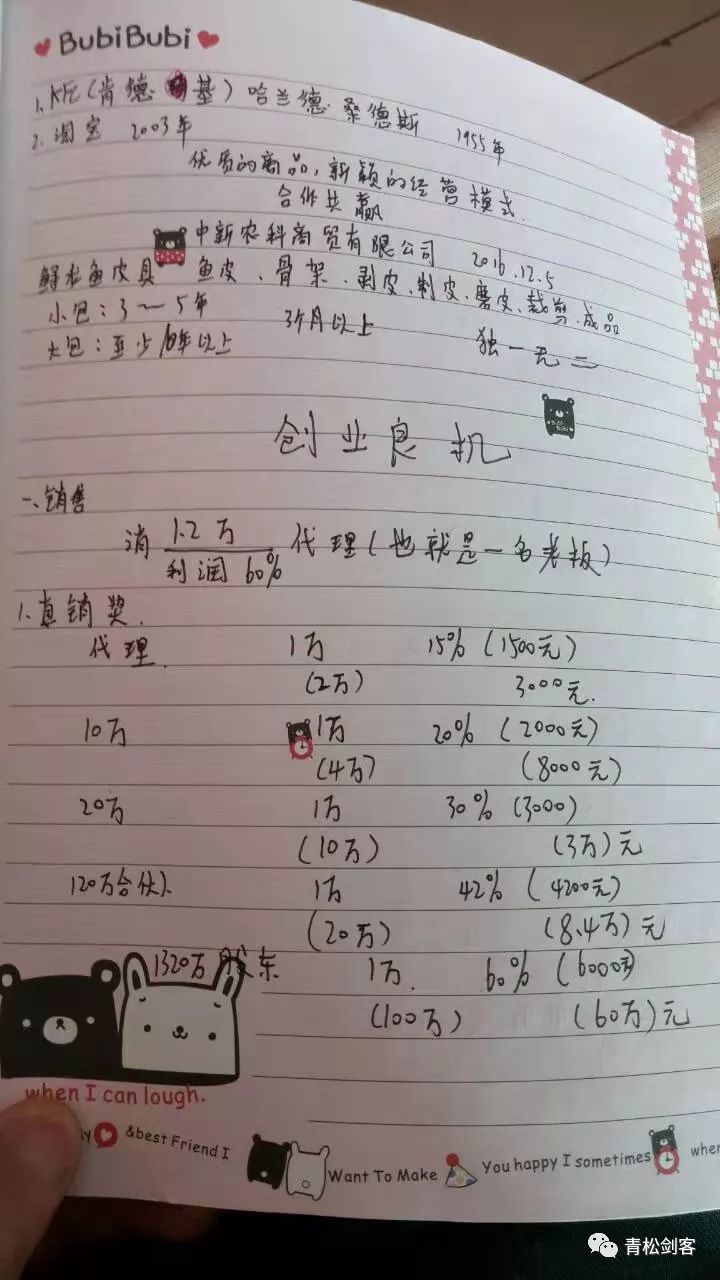 BubiBubi
1. KFC(肯德基)哈兰德.桑德斯 1955年
2. 淘宝 2003年
优质的商品,新颖的经营模式
合作共赢
中新农科商贸有限公司 2016.12.5
鲟龙鱼皮具 鱼皮、骨架、剥皮、制皮、磨皮、裁剪、成品
小包:3~5年 3个月以上 独一无二
大包:至少10年以上
BUBI BUBI
创业良机
一、销售
消 1.2万 代理(也就是一名老板)
利润60%
1. 直销奖.
代理. 1万 15%(1500元)
(2万) 3000元.
10万 1万 20%(2000元)
(4万) (8000元)
20万 1万 30%(3000)
(10万) (3万)元
120万合伙人 1万 42%(4200元)
(20万) (8.4万)元
1320万股东 1万. 60%(6000元)
(100万) (60万)元
when I can lough.
&best Friend I
Want To Make
You happy I sometimes
when
青松剑客